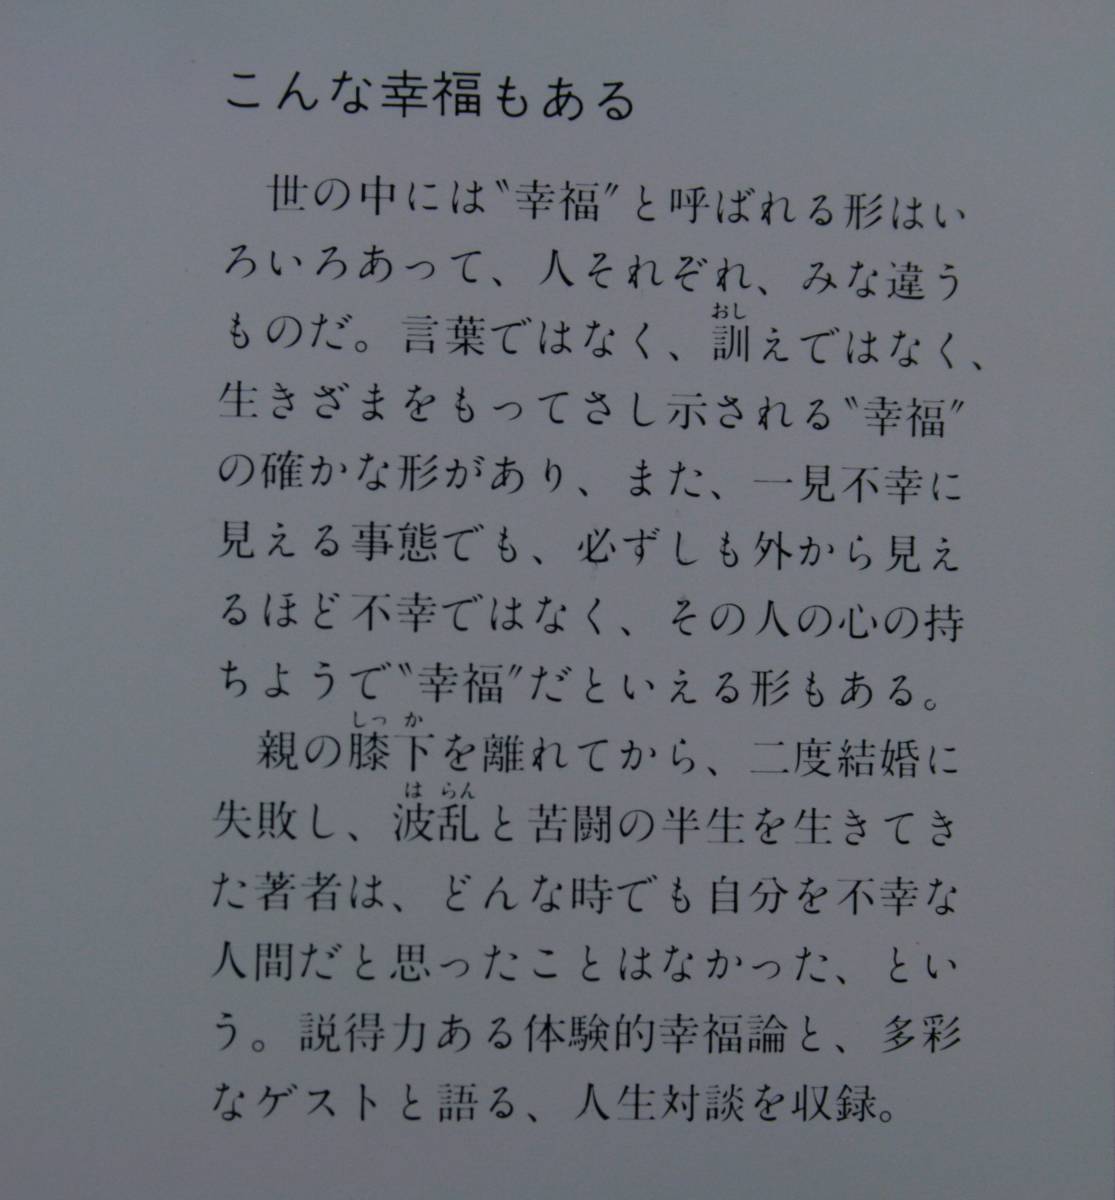 こんな幸福もある
世の中には〝幸福〟と呼ばれる形はい
ろいろあって、人それぞれ、みな違う
おし
ものだ。言葉ではなく、訓えではなく、
生きざまをもってさし示される〝幸福〟
の確かな形があり、また、一見不幸に
見える事態でも、必ずしも外から見え
るほど不幸ではなく、その人の心の持
ちようで〝幸福〟だといえる形もある。
しっか
親の膝下を離れてから、二度結婚に
はらん
失敗し、波乱と苦闘の半生を生きてき
た著者は、どんな時でも自分を不幸な
人間だと思ったことはなかった、とい
う。説得力ある体験的幸福論と、多彩
なゲストと語る、人生対談を収録。